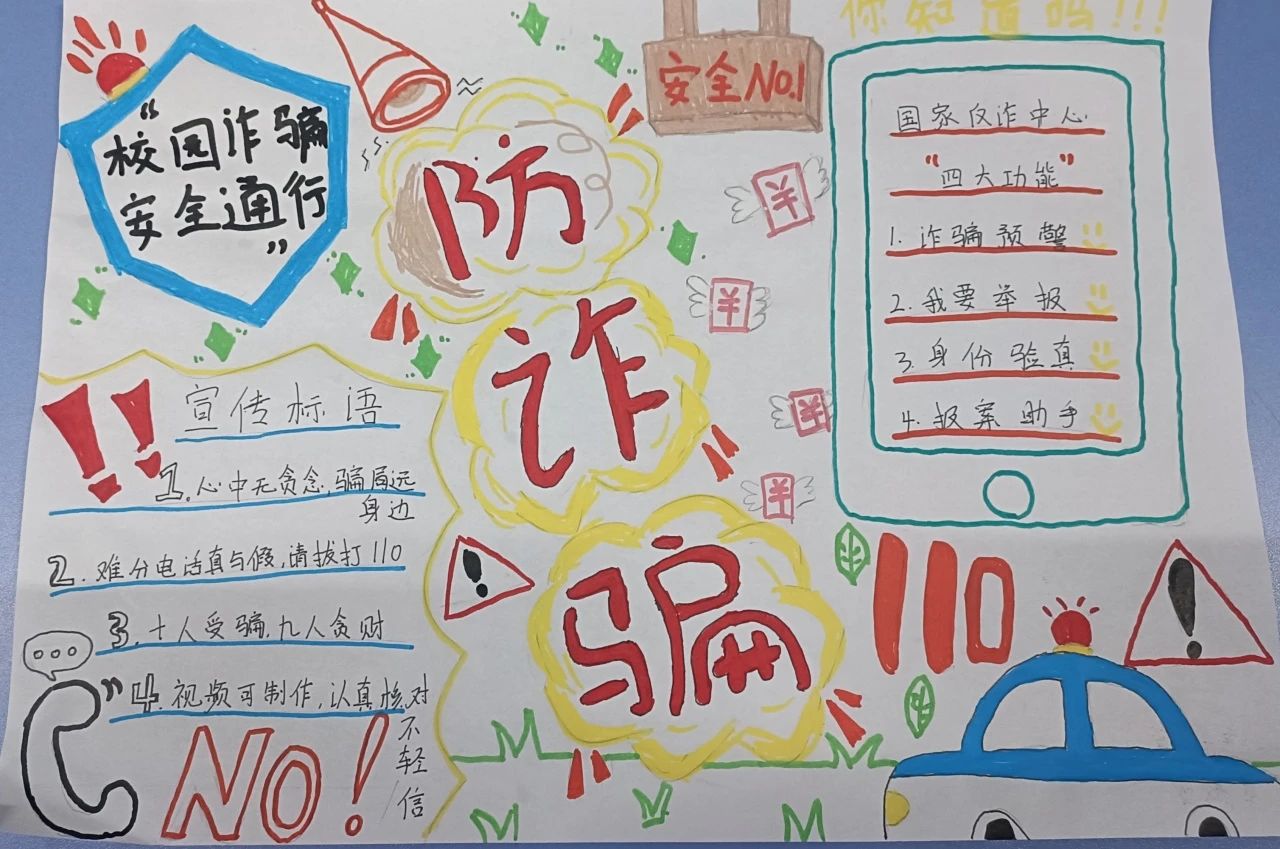 "校园诈骗
安全通行"
安全No.1
你知道吗!!!
防
诈
骗
国家反诈中心
"四大功能"
1.诈骗预警
2.我要举报
3.身份验真
4.报案助手
¥
¥
¥
¥
!!
宣传标语
1.心中无贪念,骗局远
身边
2.难分电话真与假,请拔打110
3.十人受骗,九人贪财
4.视频可制作,认真核对
不
轻
信
NO!
!
110
!